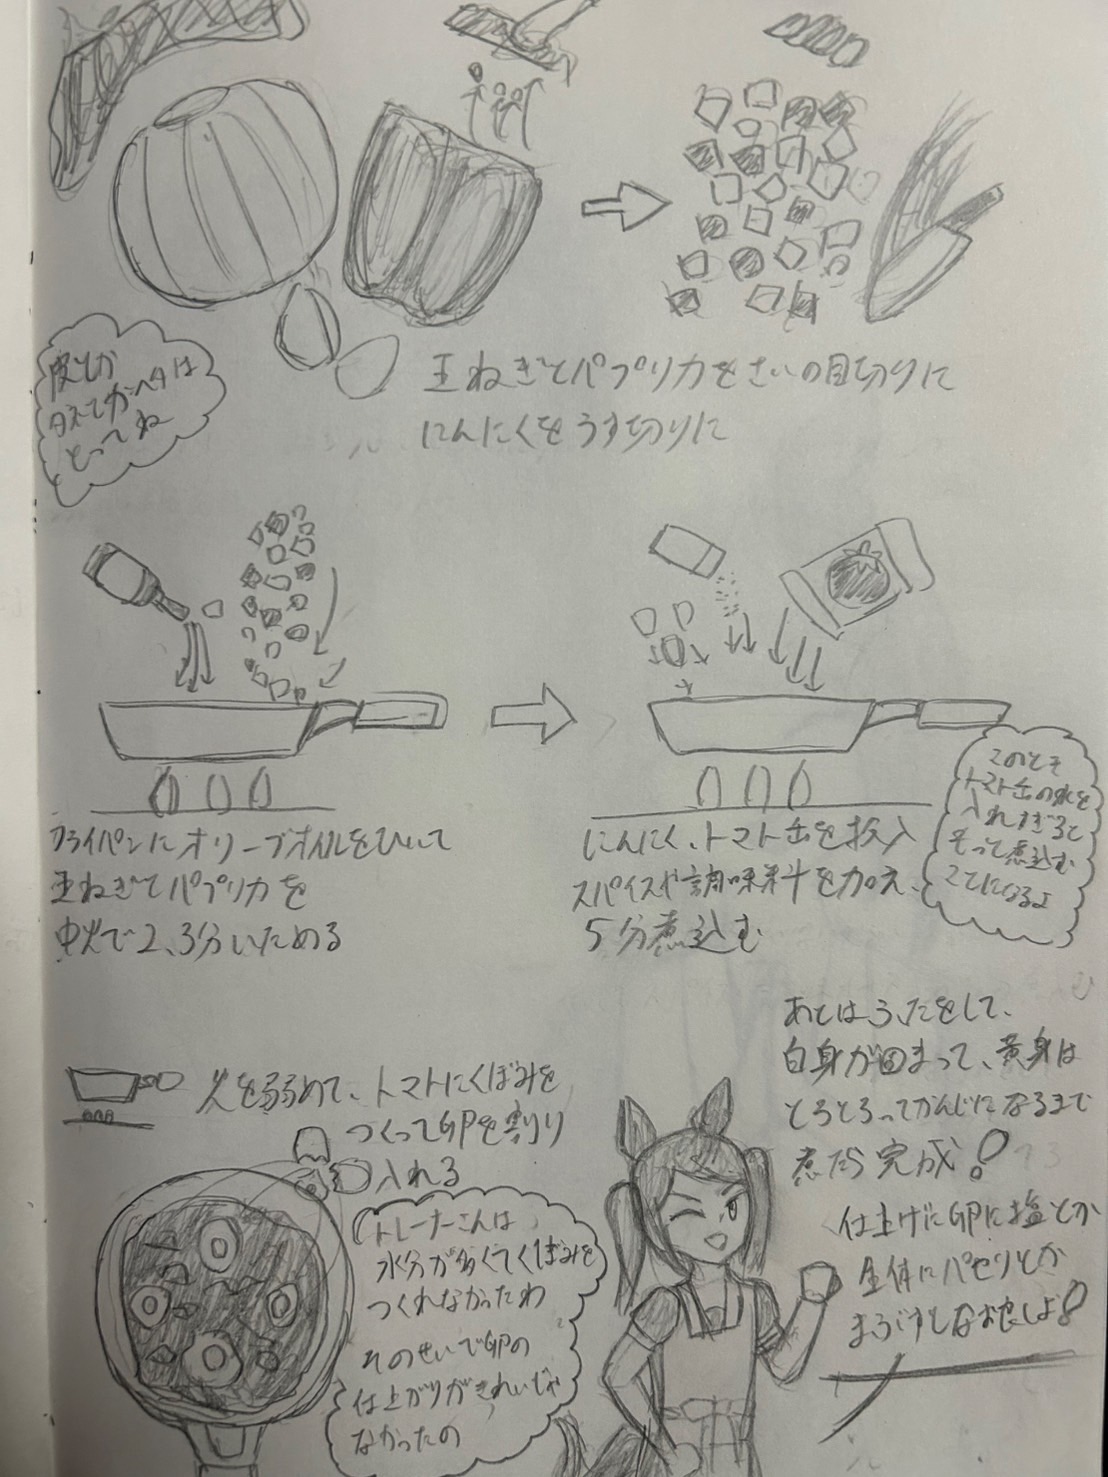 玉ねぎとパプリカをさいの目切りに
にんにくをうす切りに
皮とか
タネとかヘタは
とってね
フライパンにオリーブオイルをひいて
玉ねぎとパプリカを
中火で2、3分いためる
にんにく、トマト缶を投入
スパイスや調味料を加え、
5分煮込む
このとき
トマト缶の水を
入れすぎると
もっと煮込む
ことになるよ
火を弱めて、トマトにくぼみを
つくってGPを割り
入れる
トレーナーさんは
水分が多くてくぼみを
つくれなかったわ
そのせいでGPの
仕上がりがきれいじゃ
なかったの
あとはふたをして、
白身が固まって、黄身は
とろとろってかんじになるまで
煮たら完成!
仕上げにGPに塩とか
全体にパセリとか
まぶすとなお良しよ!